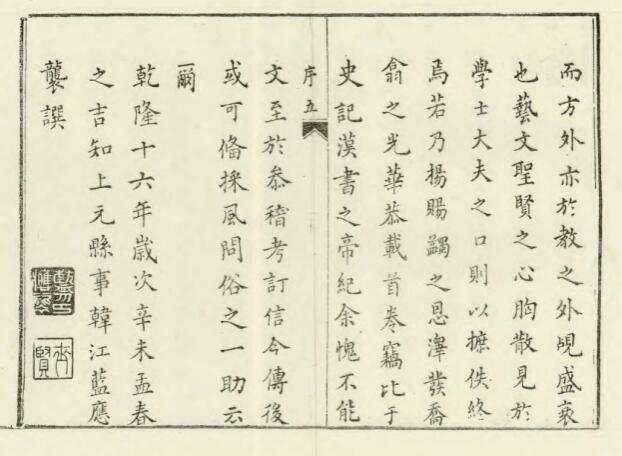 而方外亦於教之外覘盛衰
也藝文聖賢之心胸散見於
學士大夫之口則以摭佚終
焉若乃揚賜蠲之恩澤發喬
翕之光華恭載首卷竊比于
史記漢書之帝紀余愧不能
序五
文至於叅稽考訂信今傳後
或可俻採風問俗之一助云
爾
乾隆十六年歲次辛未孟春
之吉知上元縣事韓江藍應
襲撰